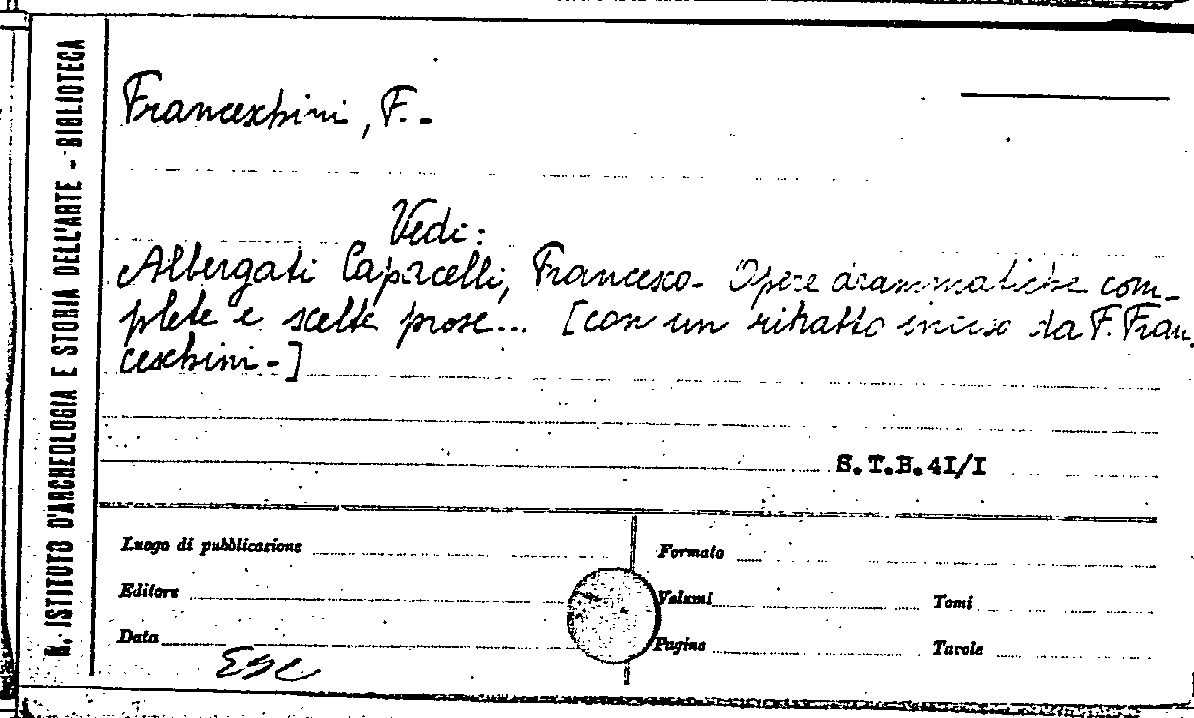 R. ISTITUTO D'ARCHEOLOGIA E STORIA DELL'ARTE - BIBLIOTECA
Franceschini, F. -
Vedi:
Albergati Capacelli, Francesco - Opere drammatiche com-
plete e scelte prose... [con un ritratto inciso da F. Fran-
ceschini -]
S.T.B.41/I
Luogo di pubblicazione
Formato
Editore
Volumi
Tomi
Data
Pagine
Tavole